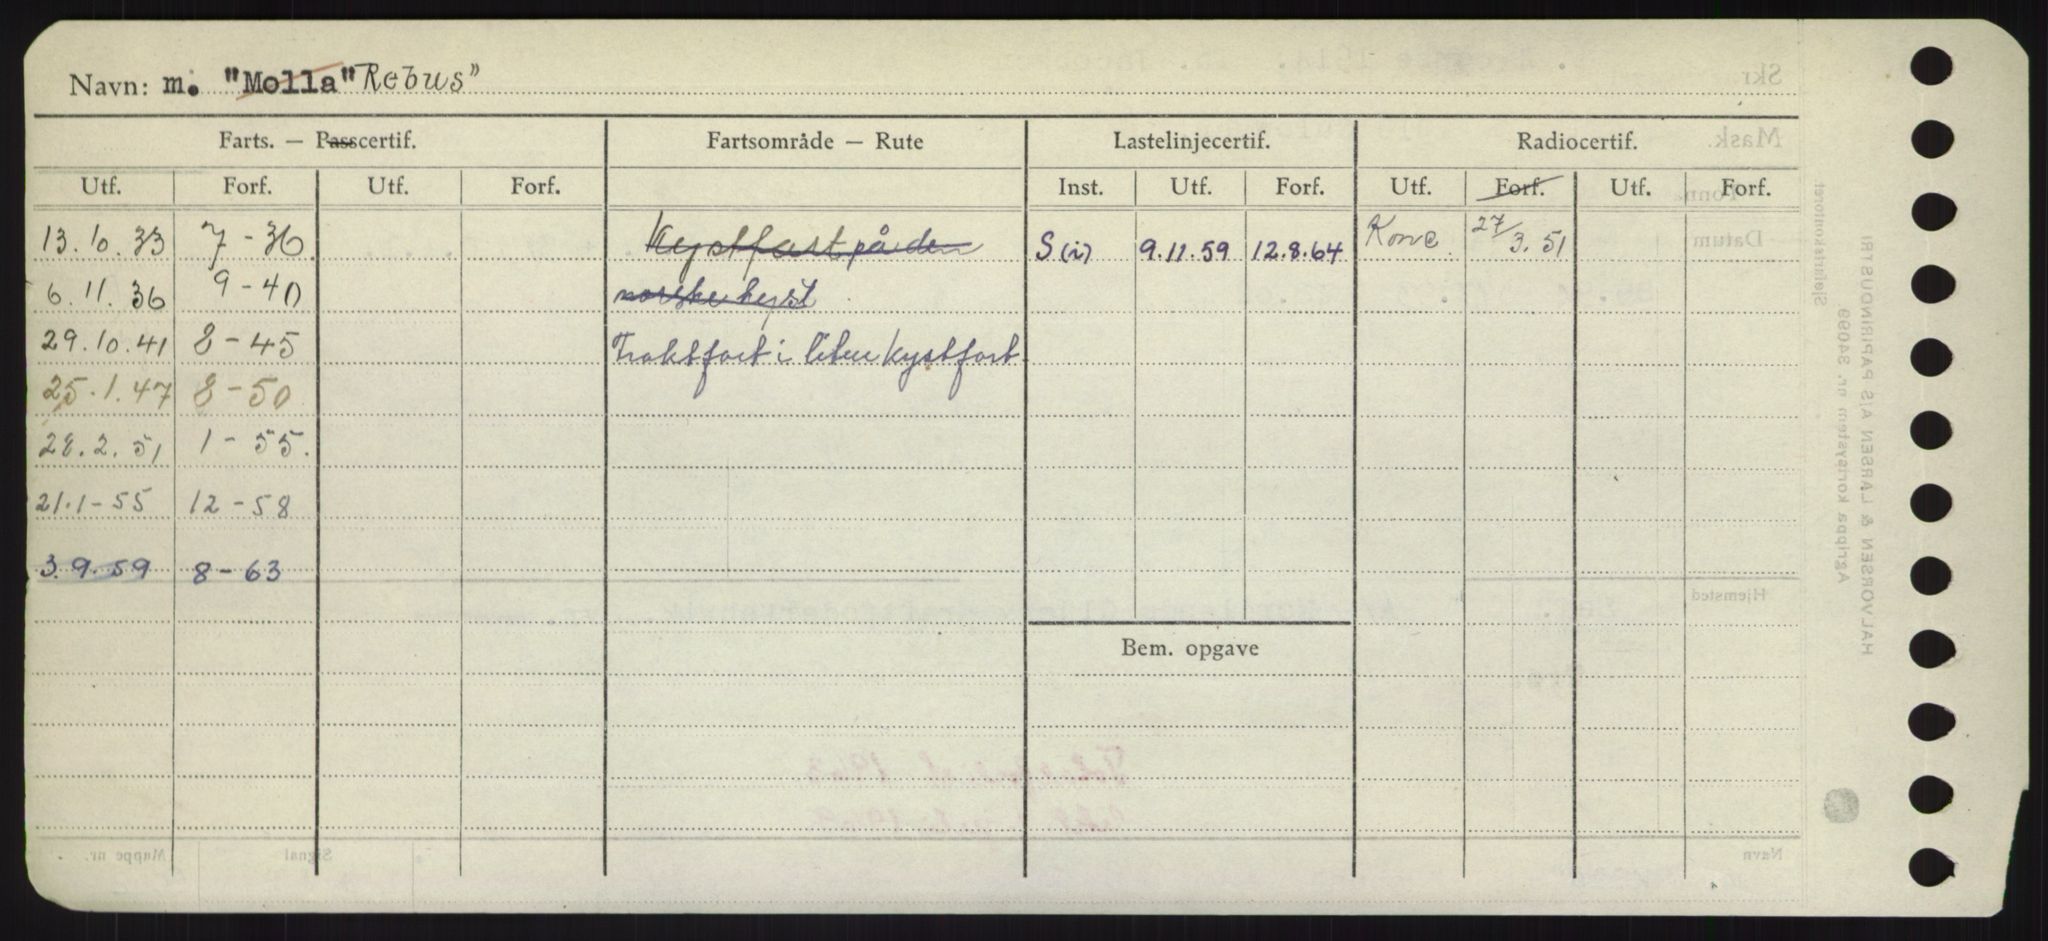 Navn: m. "Molla" Rebus"
Farts. — Passcertif. Fartsområde — Rute Lastelinjecertif. Radiocertif.
Utf. Forf. Utf. Forf. Inst. Utf. Forf. Utf. Forf. Utf. Forf.
13.10.33 7-36 Kystfart på den S (i) 9.11.59 12.8.64 Konc. 27/3.51
6.11.36 9-40 norske kyst
29.10.41 8-45 Fraktfart i liten kystfart.
25.1.47 8-50
28.2.51 1-55.
21.1-55 12-58
3.9.59 8-63
Bem. opgave
Skr.
Mask.
Tonna
Datum
Sjøfartskontoret
Hjemsted
Agrippa kortsystem nr. 34099
HALVORSEN & LARSEN A/S PAPIRINDUSTRI
Mappe nr. Signal Navn